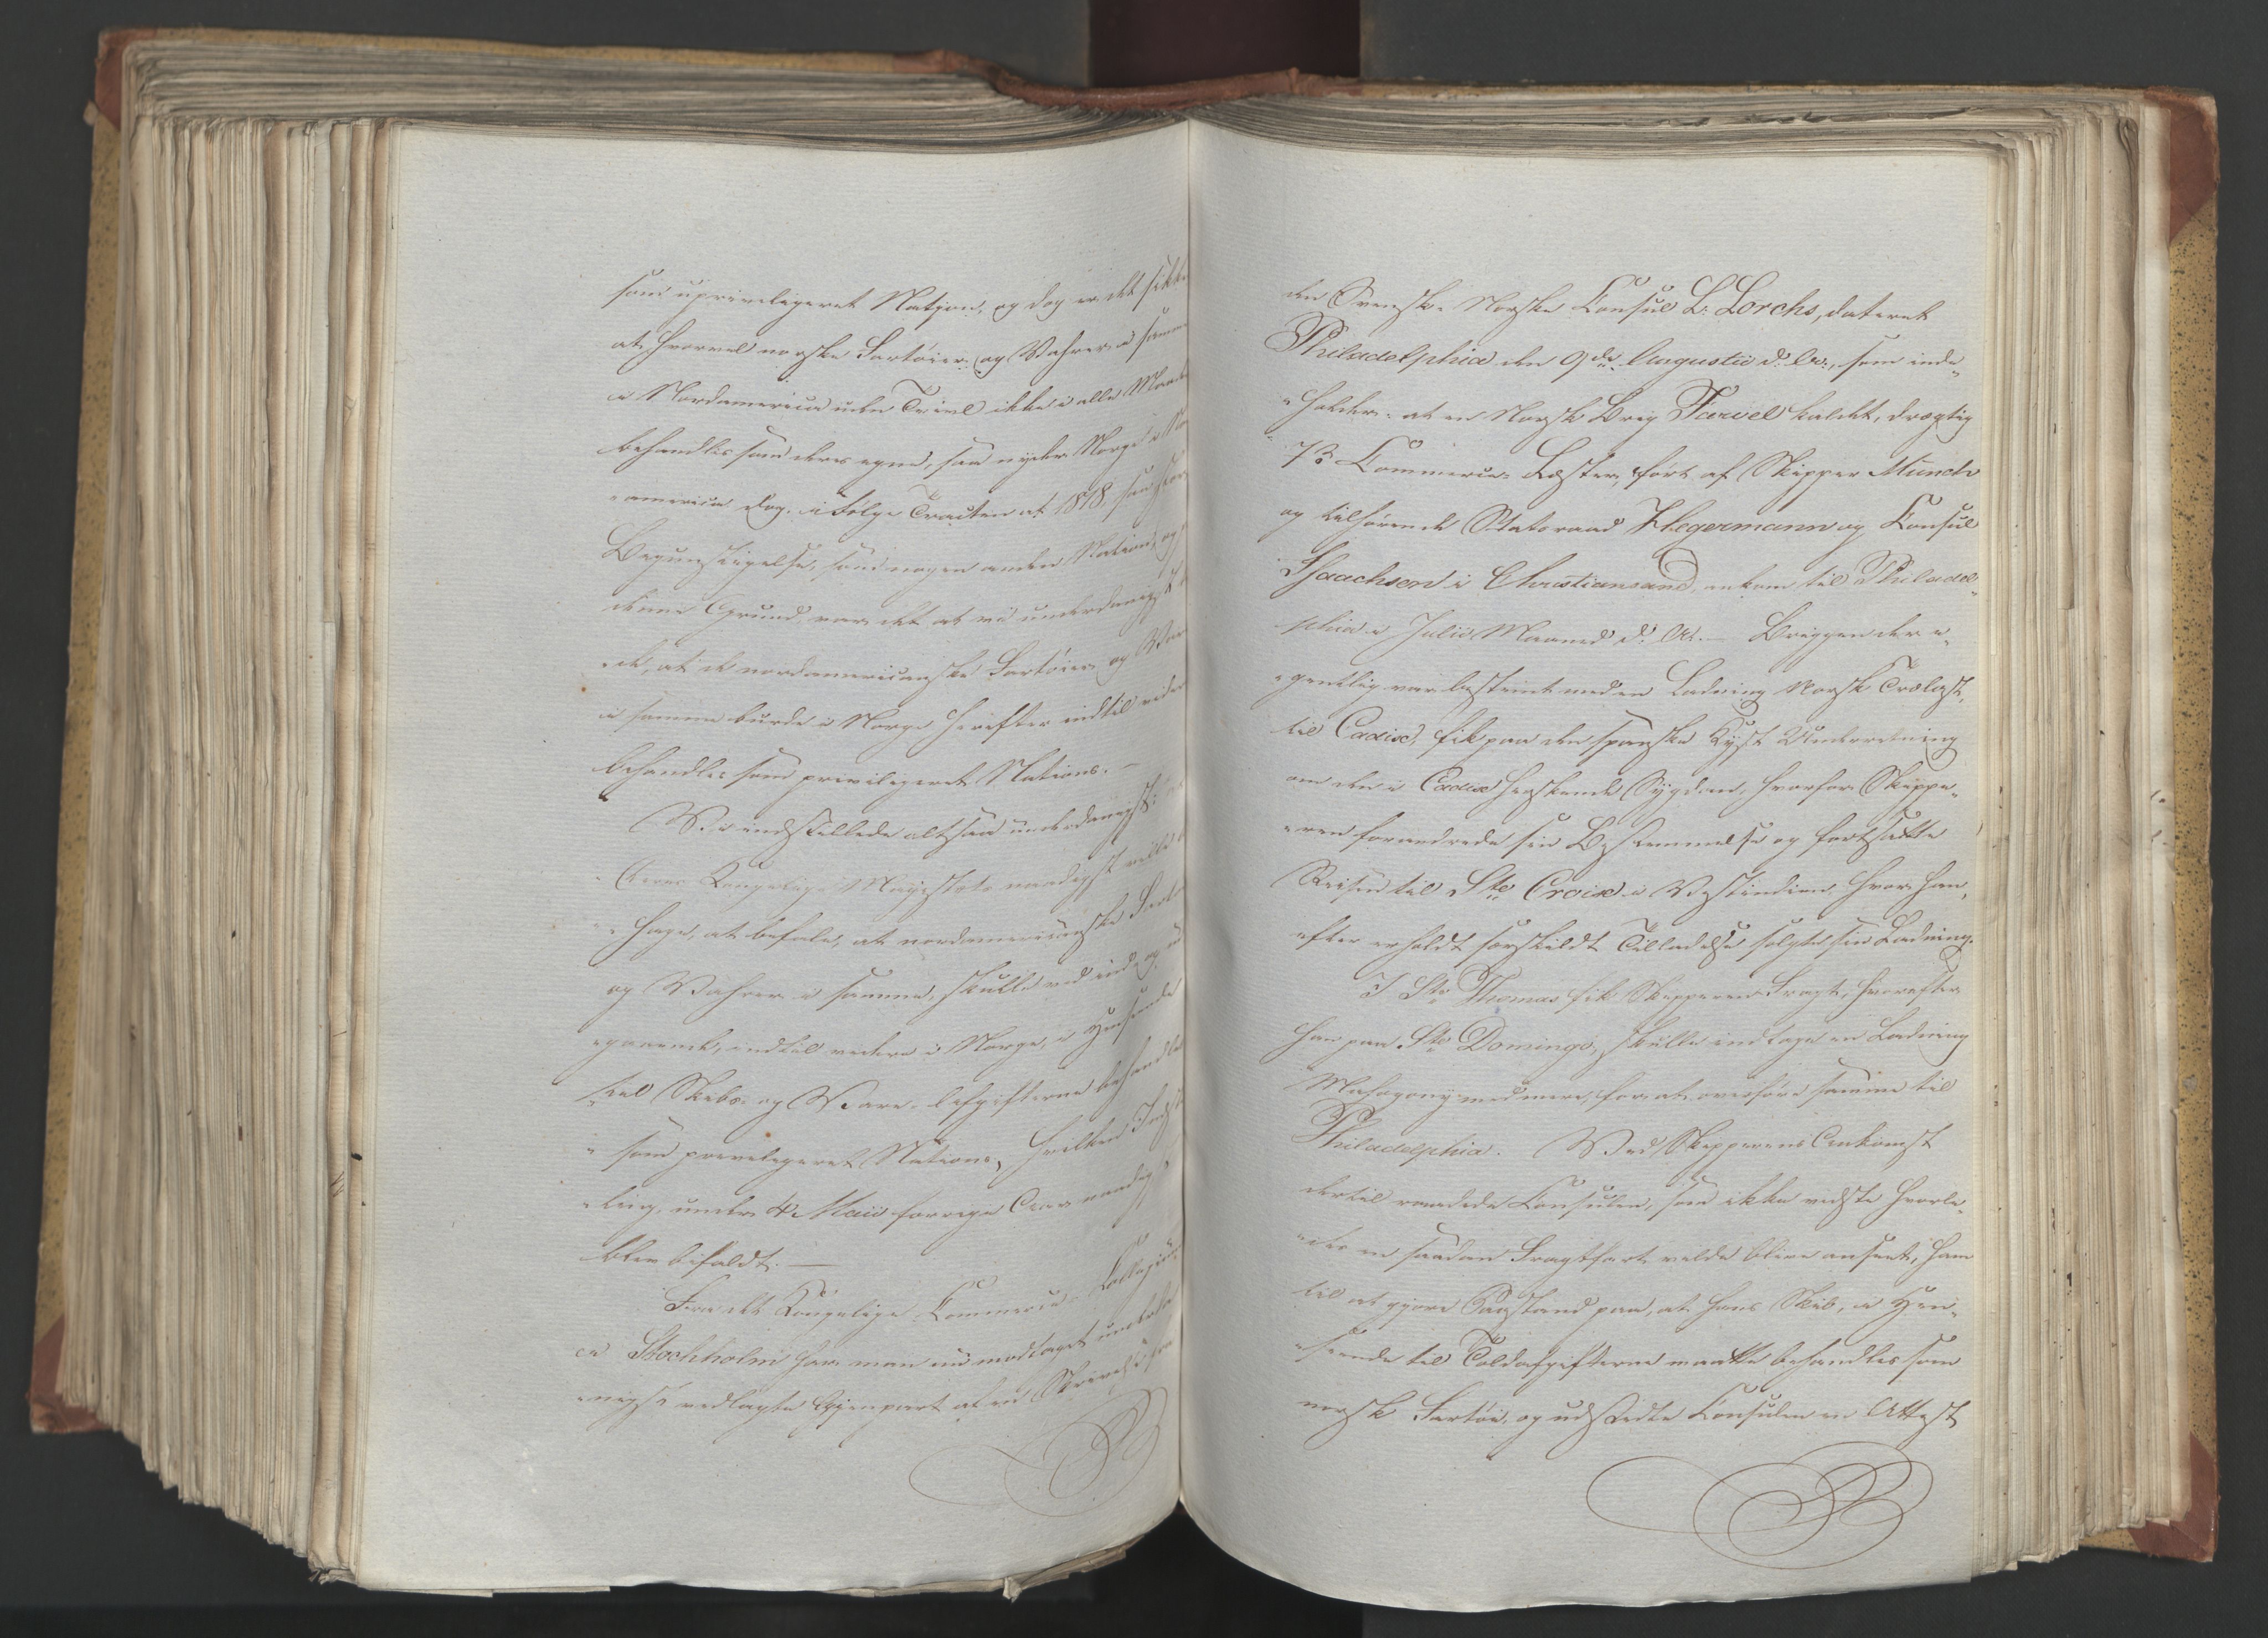 som uprivilegeret Nation, og dog er det sikke
at hvorvel norske Fartøier og Vahrer i samme
i Nordamerica uden Tvivl ikke i alle Maade
behandles som deres egne, saa nyder Norge i No
america dog i Følge Tracten af 1818 saa stor
Begunstigelse, som nogen anden Nation, og
denne Grund var det at vi underdanigst
de, at de nordamericanske Fartøier og Var
i samme burde i Norge herefter indtil vider
behandles som privilegeret Nations. —
Vi indstillede altsaa underdanigst:
Deres Kongelige Majestæt naadigst ville
„hage, at befale, at nordamericanske Fartø
og Vahrer i samme, skulle ved ind- og ud
„gaaende, indtil videre i Norge, i Henseende
„til Skibs- og Vare-Afgifterne behandles
„som privilegeret Nations, hvilken Indst
„ling, under 4 Maii forrige Aar naadigst
blev bifaldt. —
Fra det Kongelige Commerce-Collegium
i Stockholm har man nu modtaget underda
„nigst vedlagte Gjenpart af en Skrivelse fra
den Svensk-Norske Consul L: Lorchs, dateret
Philadelphia den 9de Augustii d: A:, som inde„
„holder: at en Norsk Brig Farvel kaldet, drægtig
73 Commerce-Læster, ført af Skipper Münch
og tilhørende Statsraad Hegermann og Consul
Isaachsen i Christiansand, ankom til Philadel„
phia i Julii Maaned d: A. — Briggen der e„
„gentlig var bestemt med en Ladning Norsk Trælast,
til Cadix, fik paa den spanske Kyst Underretning
om den i Cadix herskende Sygdom, hvorfor Skippe„
„ren forandrede sin Bestemmelse og fortsatte
Reisen til Ste Croix i Vestindien, hvor han,
efter erholdt særskildt Tilladelse solgte sin Ladning.
I St. Thomas fik Skipperen Fragt, hvorefter
han paa Sto Domingo, skulle indtage en Ladning
Mahogony med mere, for at overføre samme til
Philadelphia. Ved Skipperens Ankomst
dertil raadede Consulen, som ikke vidste hvorle„
„des en saadan Fragtfart vilde blive anseet, ham
til at gjøre Paastand paa, at hans Skib, i Hen„
„seende til Toldafgifterne maatte behandles som
norsk Fartøi, og udstedte Consulen en Attest